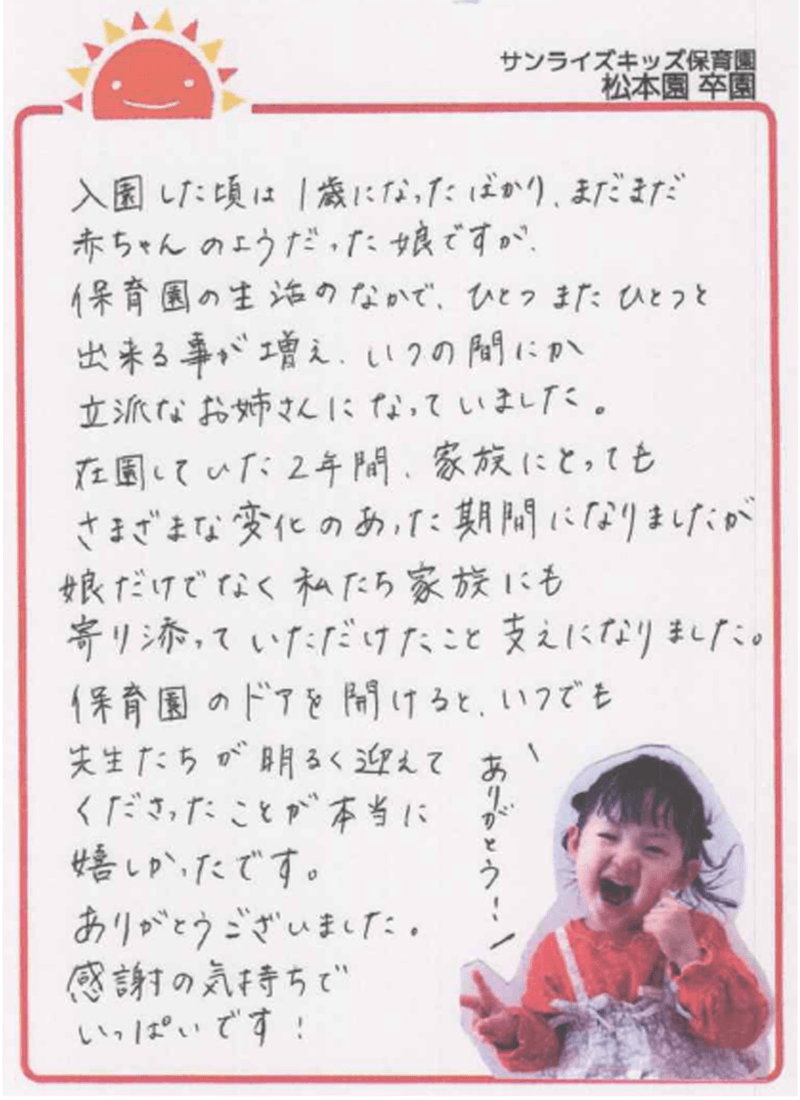 サンライズキッズ保育園
松本園 卒園
入園した頃は1歳になったばかり、まだまだ
赤ちゃんのようだった娘ですが、
保育園の生活のなかで、ひとつまたひとつと
出来る事が増え、いつの間にか
立派なお姉さんになっていました。
在園していた2年間、家族にとっても
さまざまな変化のあった期間になりましたが
娘だけでなく私たち家族にも
寄り添っていただけたこと支えになりました。
保育園のドアを開けると、いつでも
先生たちが明るく迎えて
くださったことが本当に
嬉しかったです。
ありがとうございました。
感謝の気持ちで
いっぱいです!
ありがとう!